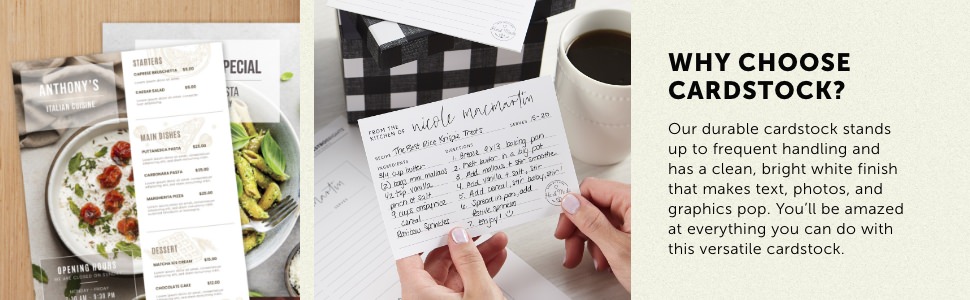 ANTHONY'S
ITALIAN CUISINE
OPENING HOURS
WE ARE CLOSED ON
MONDAY - FRIDAY
STARTERS
CAPRESE BRUSCHETTA
CAESAR SALAD
MAIN DISHES
PUTTANESCA PASTA
CARBONARA PASTA
MARGHERITA PIZZA
DESSERT
MATCHA ICE CREAM
CHOCOLATE CAKE
PECIAL
STA
FROM THE
KITCHEN OF nicole macmartin
RECIPE The Best Rice Krispie Treats SERVES 15-20
INGREDIENTS
3/4 cup butter
(2) bags mini mallows
1/2 tsp. vanilla
pinch of salt
9 cups
cereal
Rainbow Sprinkles
DIRECTIONS
1. Grease 9x13 baking pan
2. Melt butter in a big pot
3. Add mallows + stir smoothie
4. Add vanilla + salt, stir
5. Add cereal, stir
6. Spread in pan, add
sprinkles
7. Enjoy!
WHY CHOOSE
CARDSTOCK?
Our durable cardstock stands
up to frequent handling and
has a clean, bright white finish
that makes text, photos, and
graphics pop. You'll be amazed
at everything you can do with
this versatile cardstock.